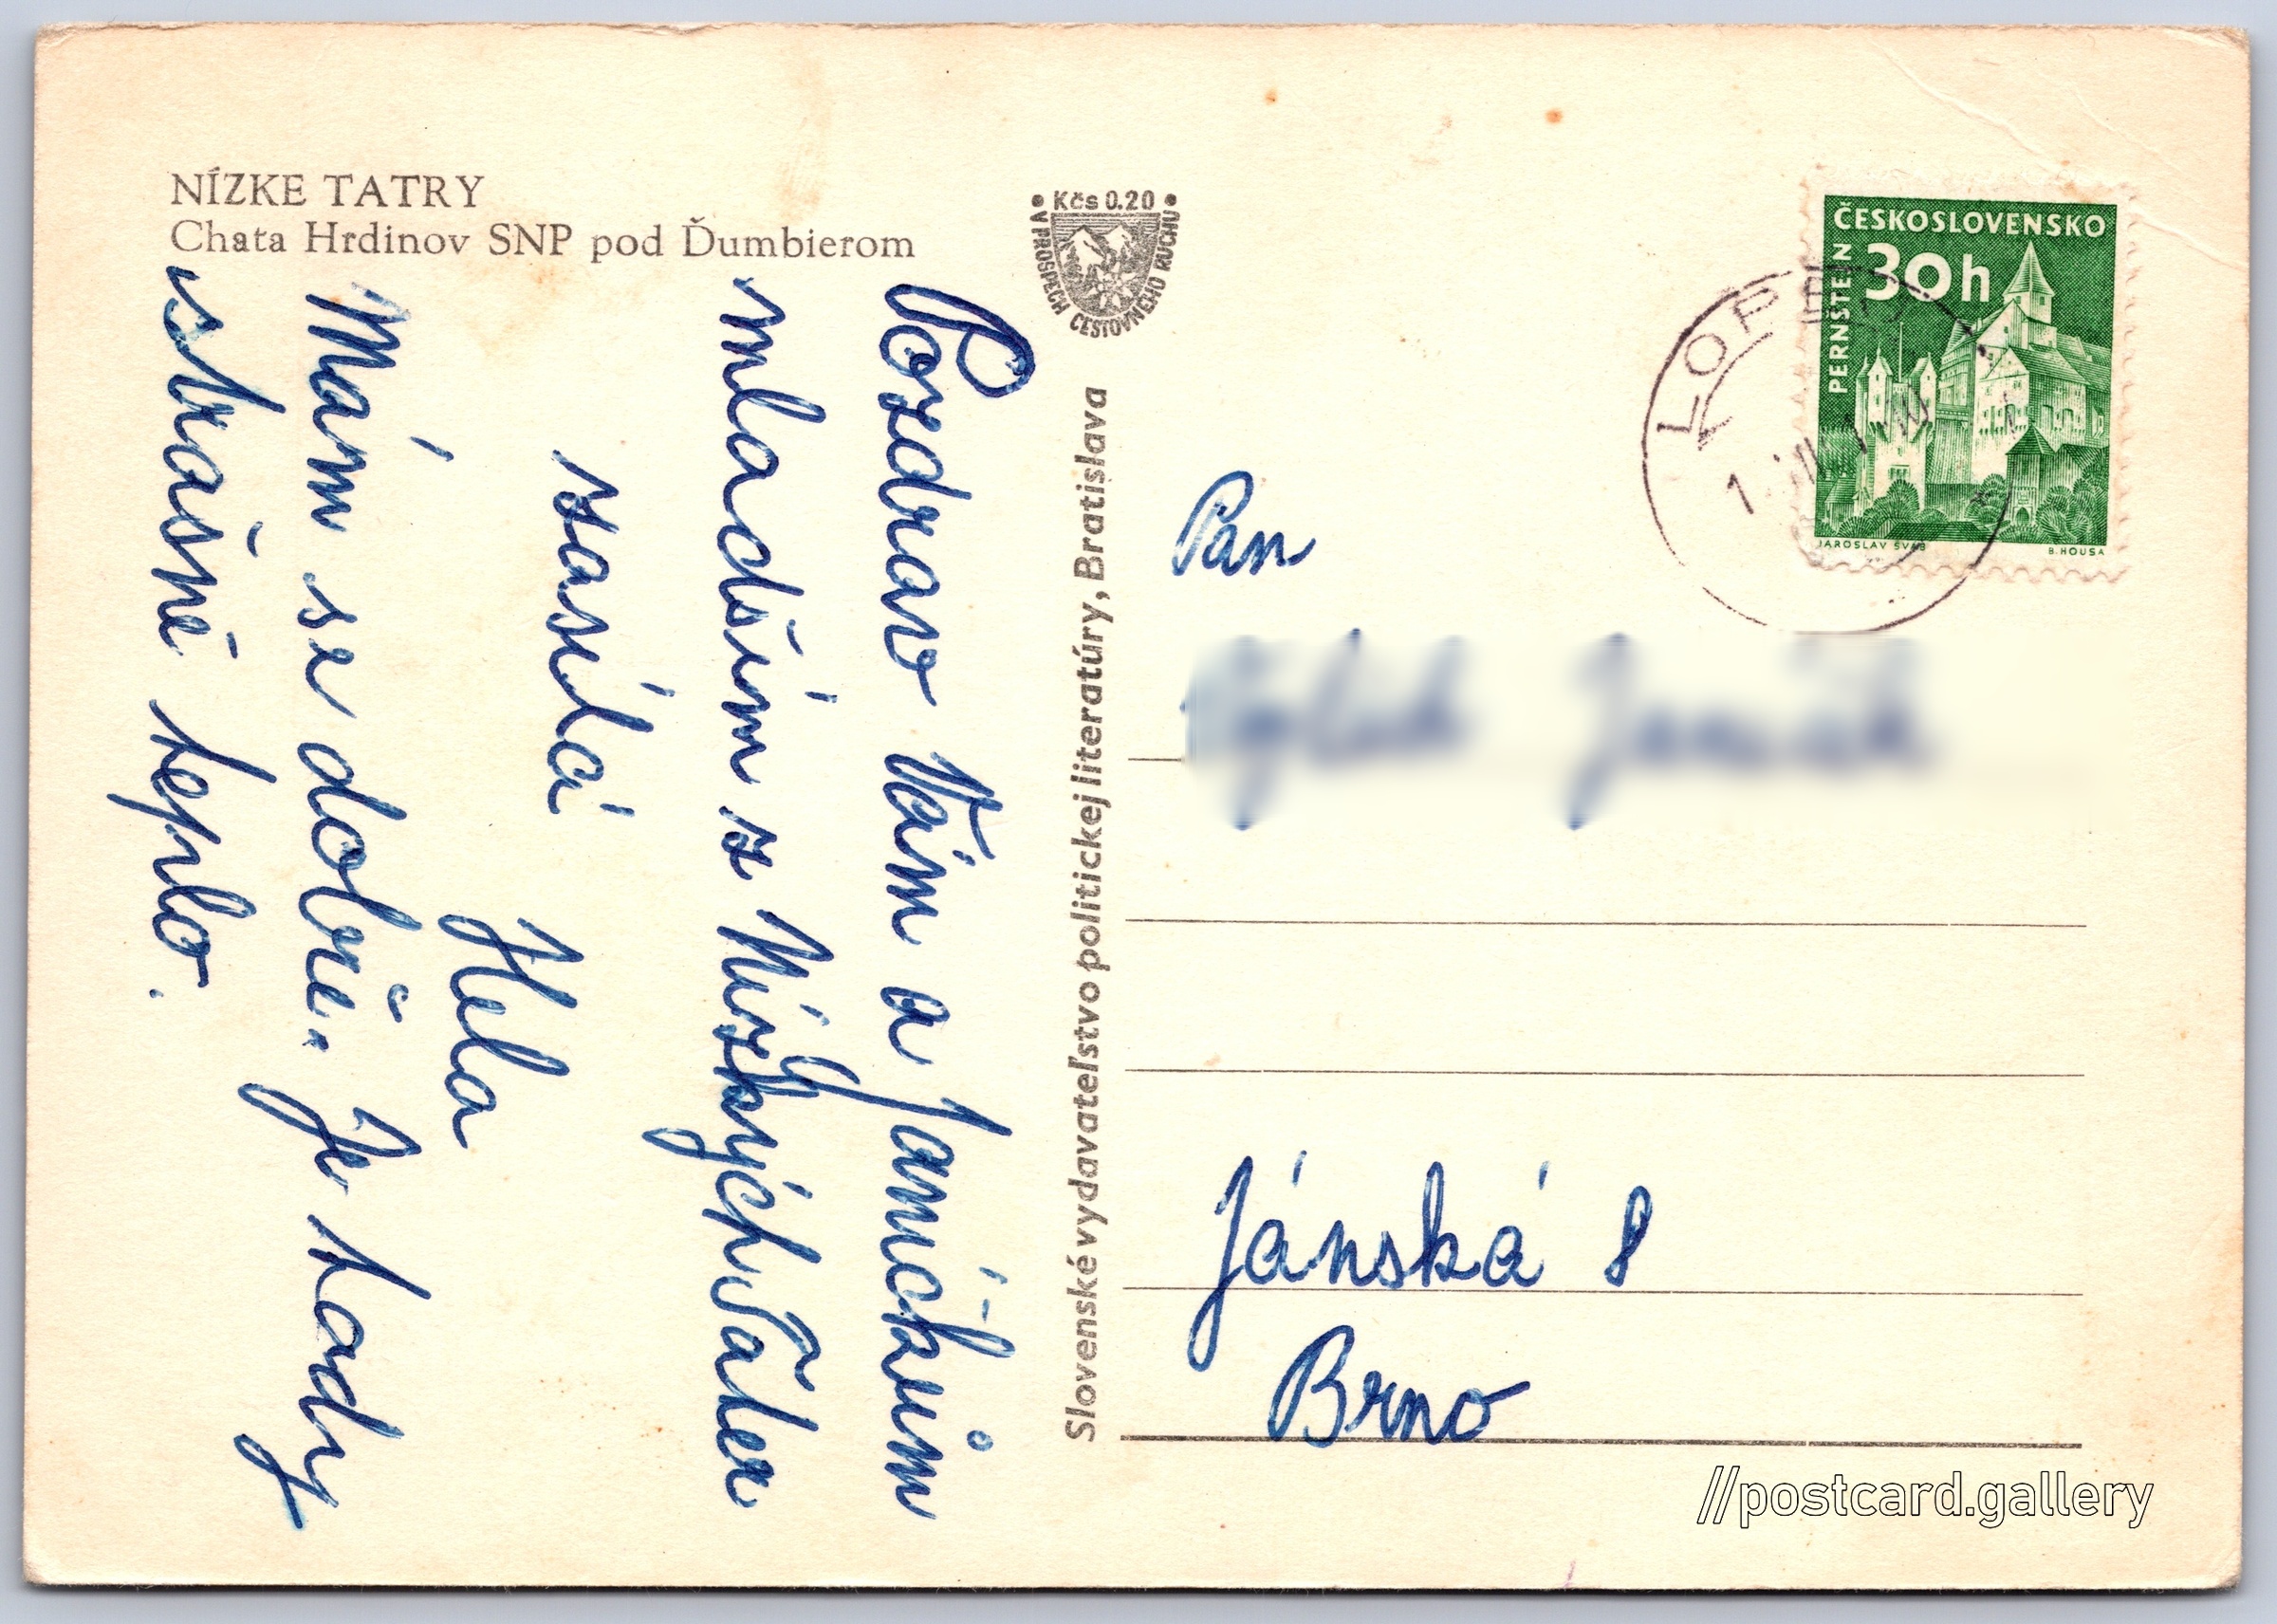 NÍZKE TATRY
Chata Hrdinov SNP pod Ďumbierom
Pozdrav Vám a Janíčkům
mladším z Nízkých Tater
zasílá
Hela
Mám se dobře. Je tady
strašně teplo.
• Kčs 0.20 •
V PROSPECH CESTOVNÉHO RUCHU
Slovenské vydavateľstvo politickej literatúry, Bratislava
ČESKOSLOVENSKO
30h
PERNŠTEJN
JAROSLAV ŠVÁB
B. HOUSA
Pan
Jánská 8
Brno
//postcard.gallery